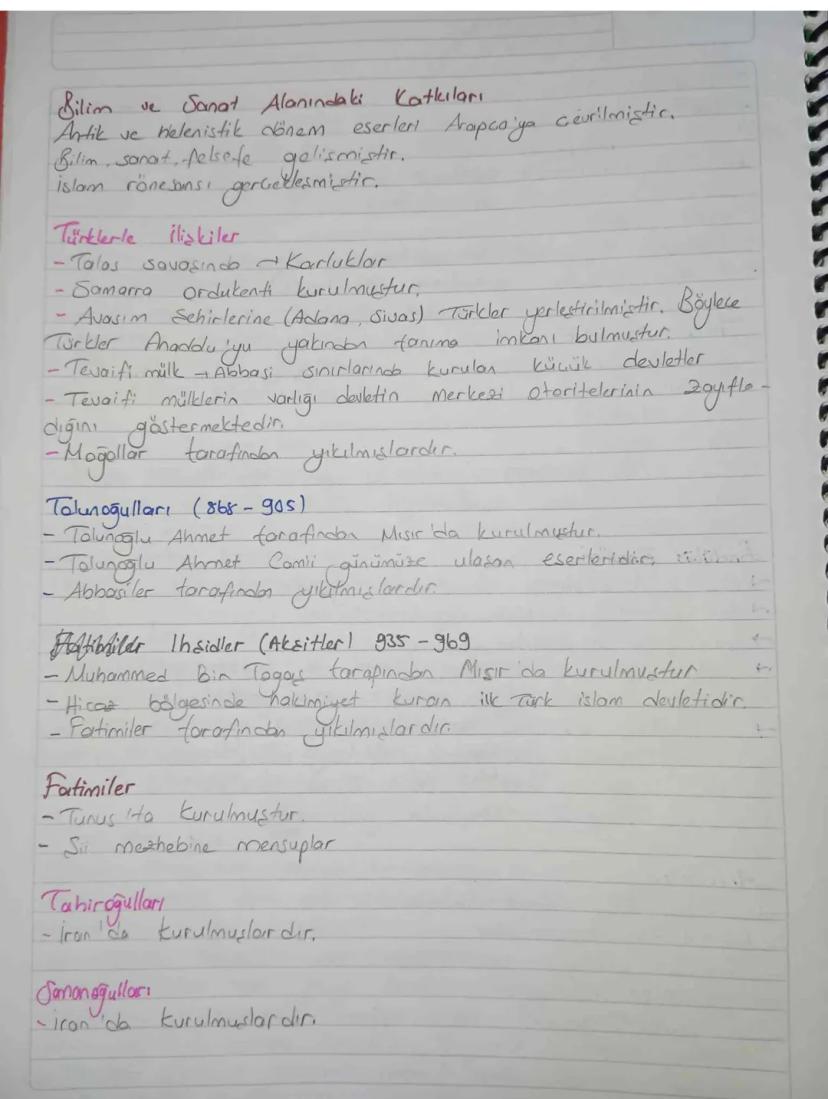 Bilim ve Sanat Alanındaki Katkıları
Antik ve Helenistik dönem eserleri Arapça'ya çevrilmiştir.
Bilim, sanat, felsefe gelişmiştir.
islam rönesansı gerçekleşmiştir.
Türklerle ilişkiler
- Talas savaşında → Karluklar
- Samarra ordukenti kurulmuştur.
- Avasım Şehirlerine (Adana, Sivas) Türkler yerleştirilmiştir. Böylece
Türkler Anadolu'yu yakından tanıma imkanı bulmuştur.
- Tevaifi mülk → Abbasi sınırlarında kurulan küçük devletler
- Tevaifi mülklerin varlığı devletin merkezi otoritelerinin zayıfla-
dığını göstermektedir.
- Moğollar tarafından yıkılmışlardır.
Tolunoğulları (868 - 905)
- Tolunoğlu Ahmet tarafından Mısır'da kurulmuştur.
- Tolunoğlu Ahmet Camii günümüze ulaşan eserleridir.
- Abbasiler tarafından yıkılmışlardır.
Ihşidler (Akşitler) 935 - 969
- Muhammed Bin Togaç tarafından Mısır'da kurulmuştur
- Hicaz bölgesinde hakimiyet kuran ilk Türk islam devletidir.
- Fatimiler tarafından yıkılmışlardır.
Fatimiler
- Tunus'ta kurulmuştur.
- Şii mezhebine mensuplar
Tahiroğulları
- iran'da kurulmuşlardır.
Samanoğulları
- iran'da kurulmuşlardır.